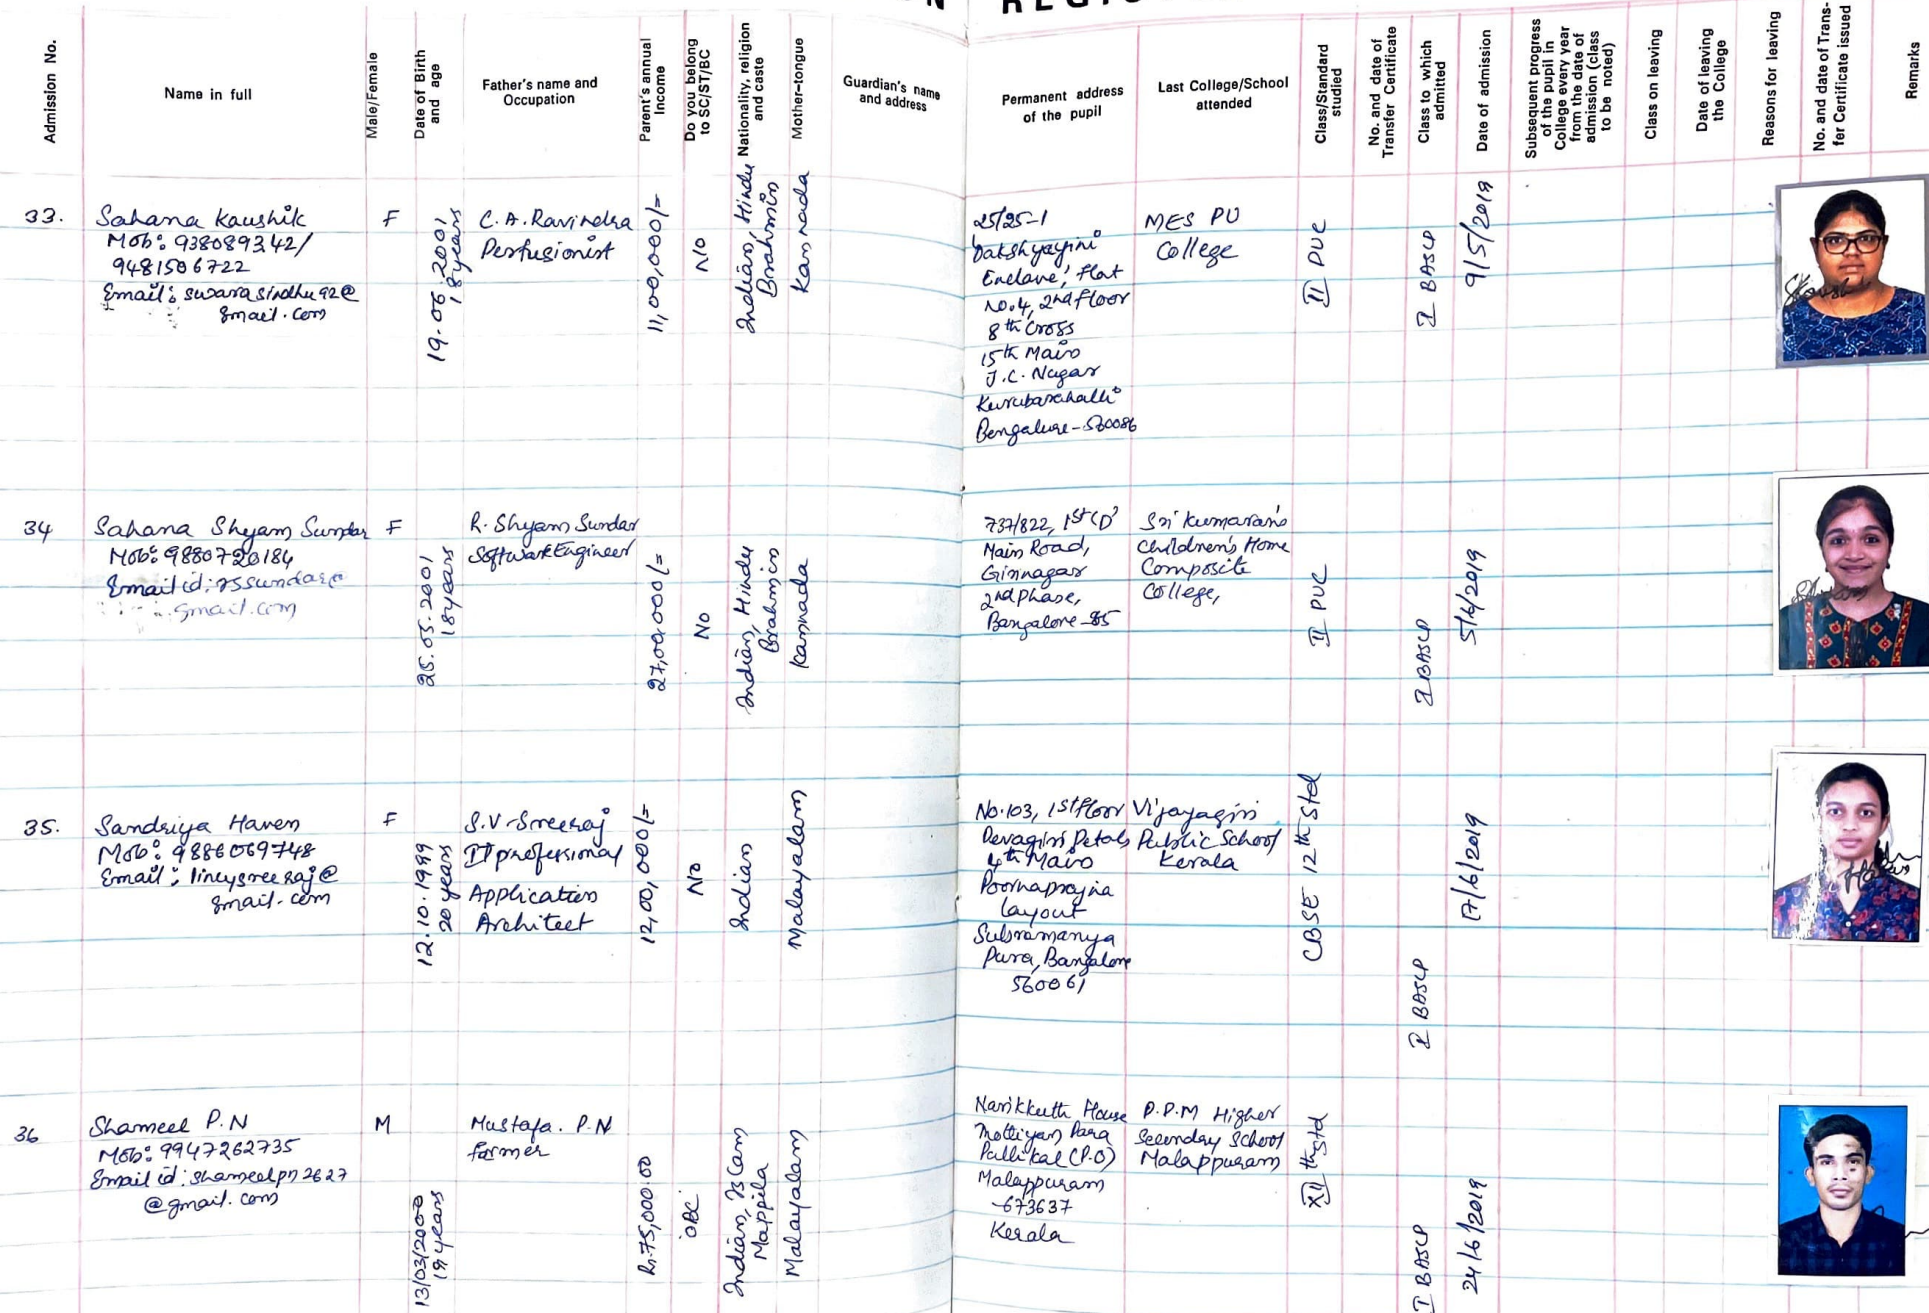 Admission No.
Name in full
Male/Female
Date of Birth
and age
Father's name and
Occupation
Parent's annual
Income
Do you belong
to SC/ST/BC
Nationality, religion
and caste
Mother-tongue
Guardian's name
and address
Permanent address
of the pupil
Last College/School
attended
Class/Standard
studied
No. and date of
Transfer Certificate
Class to which
admitted
Date of admission
Subsequent progress
of the pupil in
College every year
from the date of
admission (class
to be noted)
Class on leaving
Date of leaving
the College
Reasons for leaving
No. and date of Trans-
fer Certificate issued
Remarks
33.
Sahana Kaushik
Mob: 938089342/
9481506722
Email: swarasindhu92@
gmail.com
F
19.06.2001
18 years
C.A. Ravindra
Perfusionist
11,00,000/=
No
Indian, Hindu
Brahmin
Kannada
25/25-1
Dakshyayini
Enclave, flat
No.4, 2nd floor
8th Cross
15th Main
J.C. Nagar
Kurubarahalli
Bengalure-560086
MES PU
College
II PUC
I BASLP
9/5/2019
34
Sahana Shyam Sundar
Mob: 9880720184
Email id: rssundar@
gmail.com
F
25.05.2001
18 years
R. Shyam Sundar
Software Engineer
27,00,000/=
No
Indian, Hindu
Brahmin
Kannada
737/822, 1st 'D'
Main Road,
Girinagar
2nd phase,
Bangalore-85
Sri Kumaran's
Children's Home
Composite
College,
II PUC
I BASLP
5/6/2019
35.
Sandriya Haven
Mob: 9886069748
Email: lineysreeraj@
gmail.com
F
12.10.1999
20 years
S.V-Sreeraj
IT professional
Application
Architect
12,00,000/=
No
Indian
Malayalam
No.103, 1st floor
Devagiri Petals
4th Main
Poornaprajna
layout
Subramanya
Pura, Bangalore
560061
Vijayagiri
Public School
Kerala
CBSE 12th Std
I BASLP
17/6/2019
36
Shameel P.N
Mob: 9947262735
Email id: shameelpn2627
@gmail.com
M
13/03/2000
19 years
Mustafa. P.N
farmer
Rs.75,000.00
OBC
Indian, Islam
Mappila
Malayalam
Narikkuth House
Pallikal (P.O)
Malappuram
-673637
Kerala
P.P.M Higher
Secondary School
Malappuram
XII th Std
I BASLP
24/6/2019